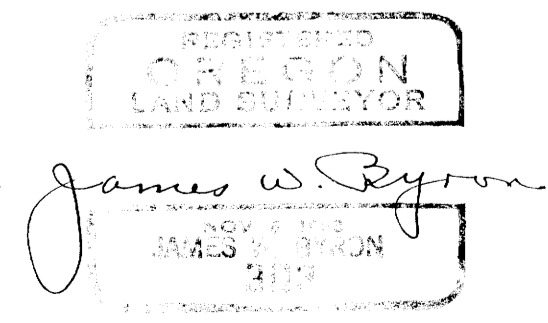 REGISTERED
OREGON
LAND SURVEYOR
James W. Byron
NOV
JAMES W. BYRON